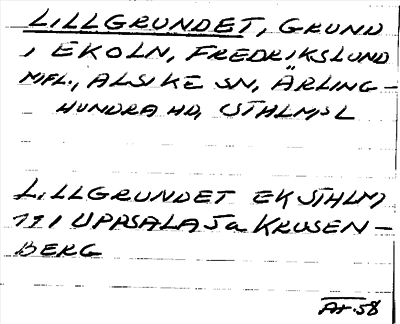 LILLGRUNDET, GRUND
I EKOLN, FREDRIKSLUND
MFL., ALSIKE SN, ÄRLING-
HUNDRA HD, STHLMS L
LILLGRUNDET EK STHLM
191 UPPSALA Sa KRUSEN-
BERG
58